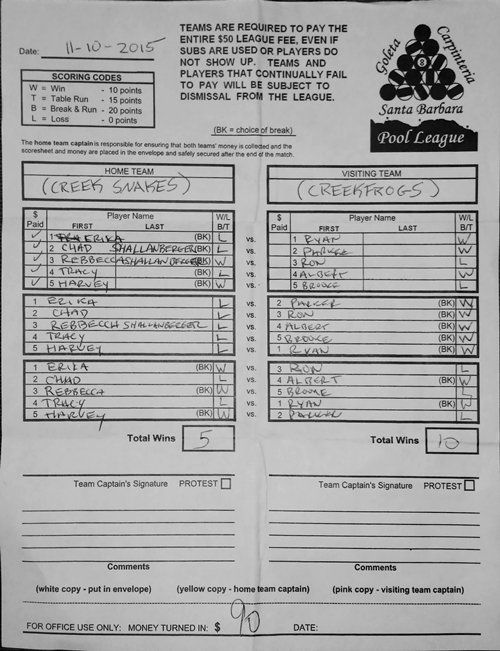 Date: 11-10-2015
TEAMS ARE REQUIRED TO PAY THE
ENTIRE $50 LEAGUE FEE, EVEN IF
SUBS ARE USED OR PLAYERS DO
NOT SHOW UP. TEAMS AND
PLAYERS THAT CONTINUALLY FAIL
TO PAY WILL BE SUBJECT TO
DISMISSAL FROM THE LEAGUE.
Goleta
Carpinteria
8
Santa Barbara
Pool League
SCORING CODES
W = Win - 10 points
T = Table Run - 15 points
B = Break & Run - 20 points
L = Loss - 0 points
(BK = choice of break)
The home team captain is responsible for ensuring that both teams' money is collected and the
scoresheet and money are placed in the envelope and safely secured after the end of the match.
HOME TEAM
(CREEK SNAKES)
VISITING TEAM
(CREEKFROGS)
$ Paid Player Name FIRST LAST W/L B/T
$ Paid Player Name FIRST LAST W/L B/T
✓ 1 ERIKA (BK) L vs. 1 RYAN W
✓ 2 CHAD SHALLANBERGER (BK) L vs. 2 PARKER W
✓ 3 REBBECCA SHALLANBERGER (BK) W vs. 3 RON L
✓ 4 TRACY (BK) L vs. 4 ALBERT W
✓ 5 HARVEY (BK) W vs. 5 BROOKE L
1 ERIKA L vs. 2 PARKER (BK) W
2 CHAD L vs. 3 RON (BK) W
3 REBBECCA SHALLANBERGER L vs. 4 ALBERT (BK) W
4 TRACY L vs. 5 BROOKE (BK) W
5 HARVEY L vs. 1 RYAN (BK) W
1 ERIKA (BK) W vs. 3 RON L
2 CHAD L vs. 4 ALBERT (BK) W
3 REBBECCA (BK) W vs. 5 BROOKE L
4 TRACY L vs. 1 RYAN (BK) W
5 HARVEY (BK) W vs. 2 PARKER L
Total Wins 5
Total Wins 10
Team Captain's Signature PROTEST
Team Captain's Signature PROTEST
Comments
Comments
(white copy - put in envelope) (yellow copy - home team captain) (pink copy - visiting team captain)
FOR OFFICE USE ONLY: MONEY TURNED IN: $ 90 DATE: